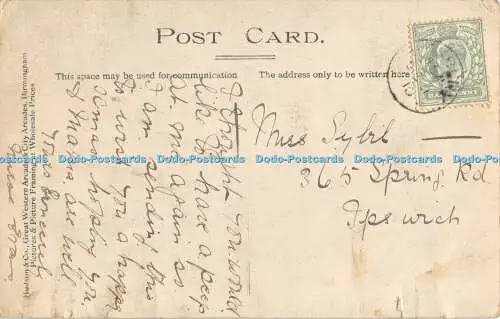 POST CARD.
This space may be used for communication
The address only to be written here
I thought you would
like to have a peep
at me again so
I am sending this
to wish you a happy
xmas hoping you
& mama are well
yours sincerely
Miss Sybil
365 Spring Rd
Ipswich
Hudson & Co., Great Western Arcade & City Arcades, Birmingham
Pictures & Picture Framing at Wholesale Prices
Dodo-Postcards Dodo-Postcards Dodo-Postcards Dodo-Postcards Dodo-Postcards